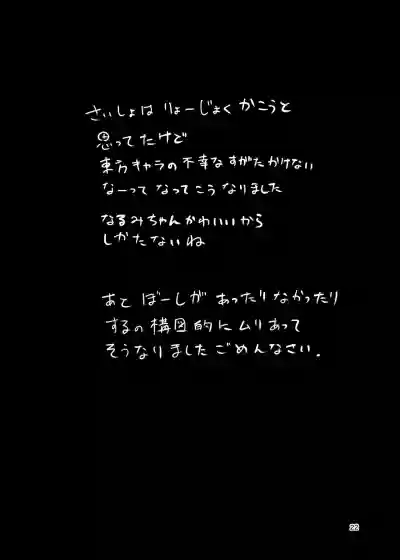 さいしょは りょーじょく かこうと
思ってたけど
東方キャラの不幸なすがたかけない
なーって なってこうなりました
なるみちゃんかわいいから
しかたないね
あと ぼーしが あったりなかったり
するの構図的にムリあって
そうなりましたごめんなさい.
22